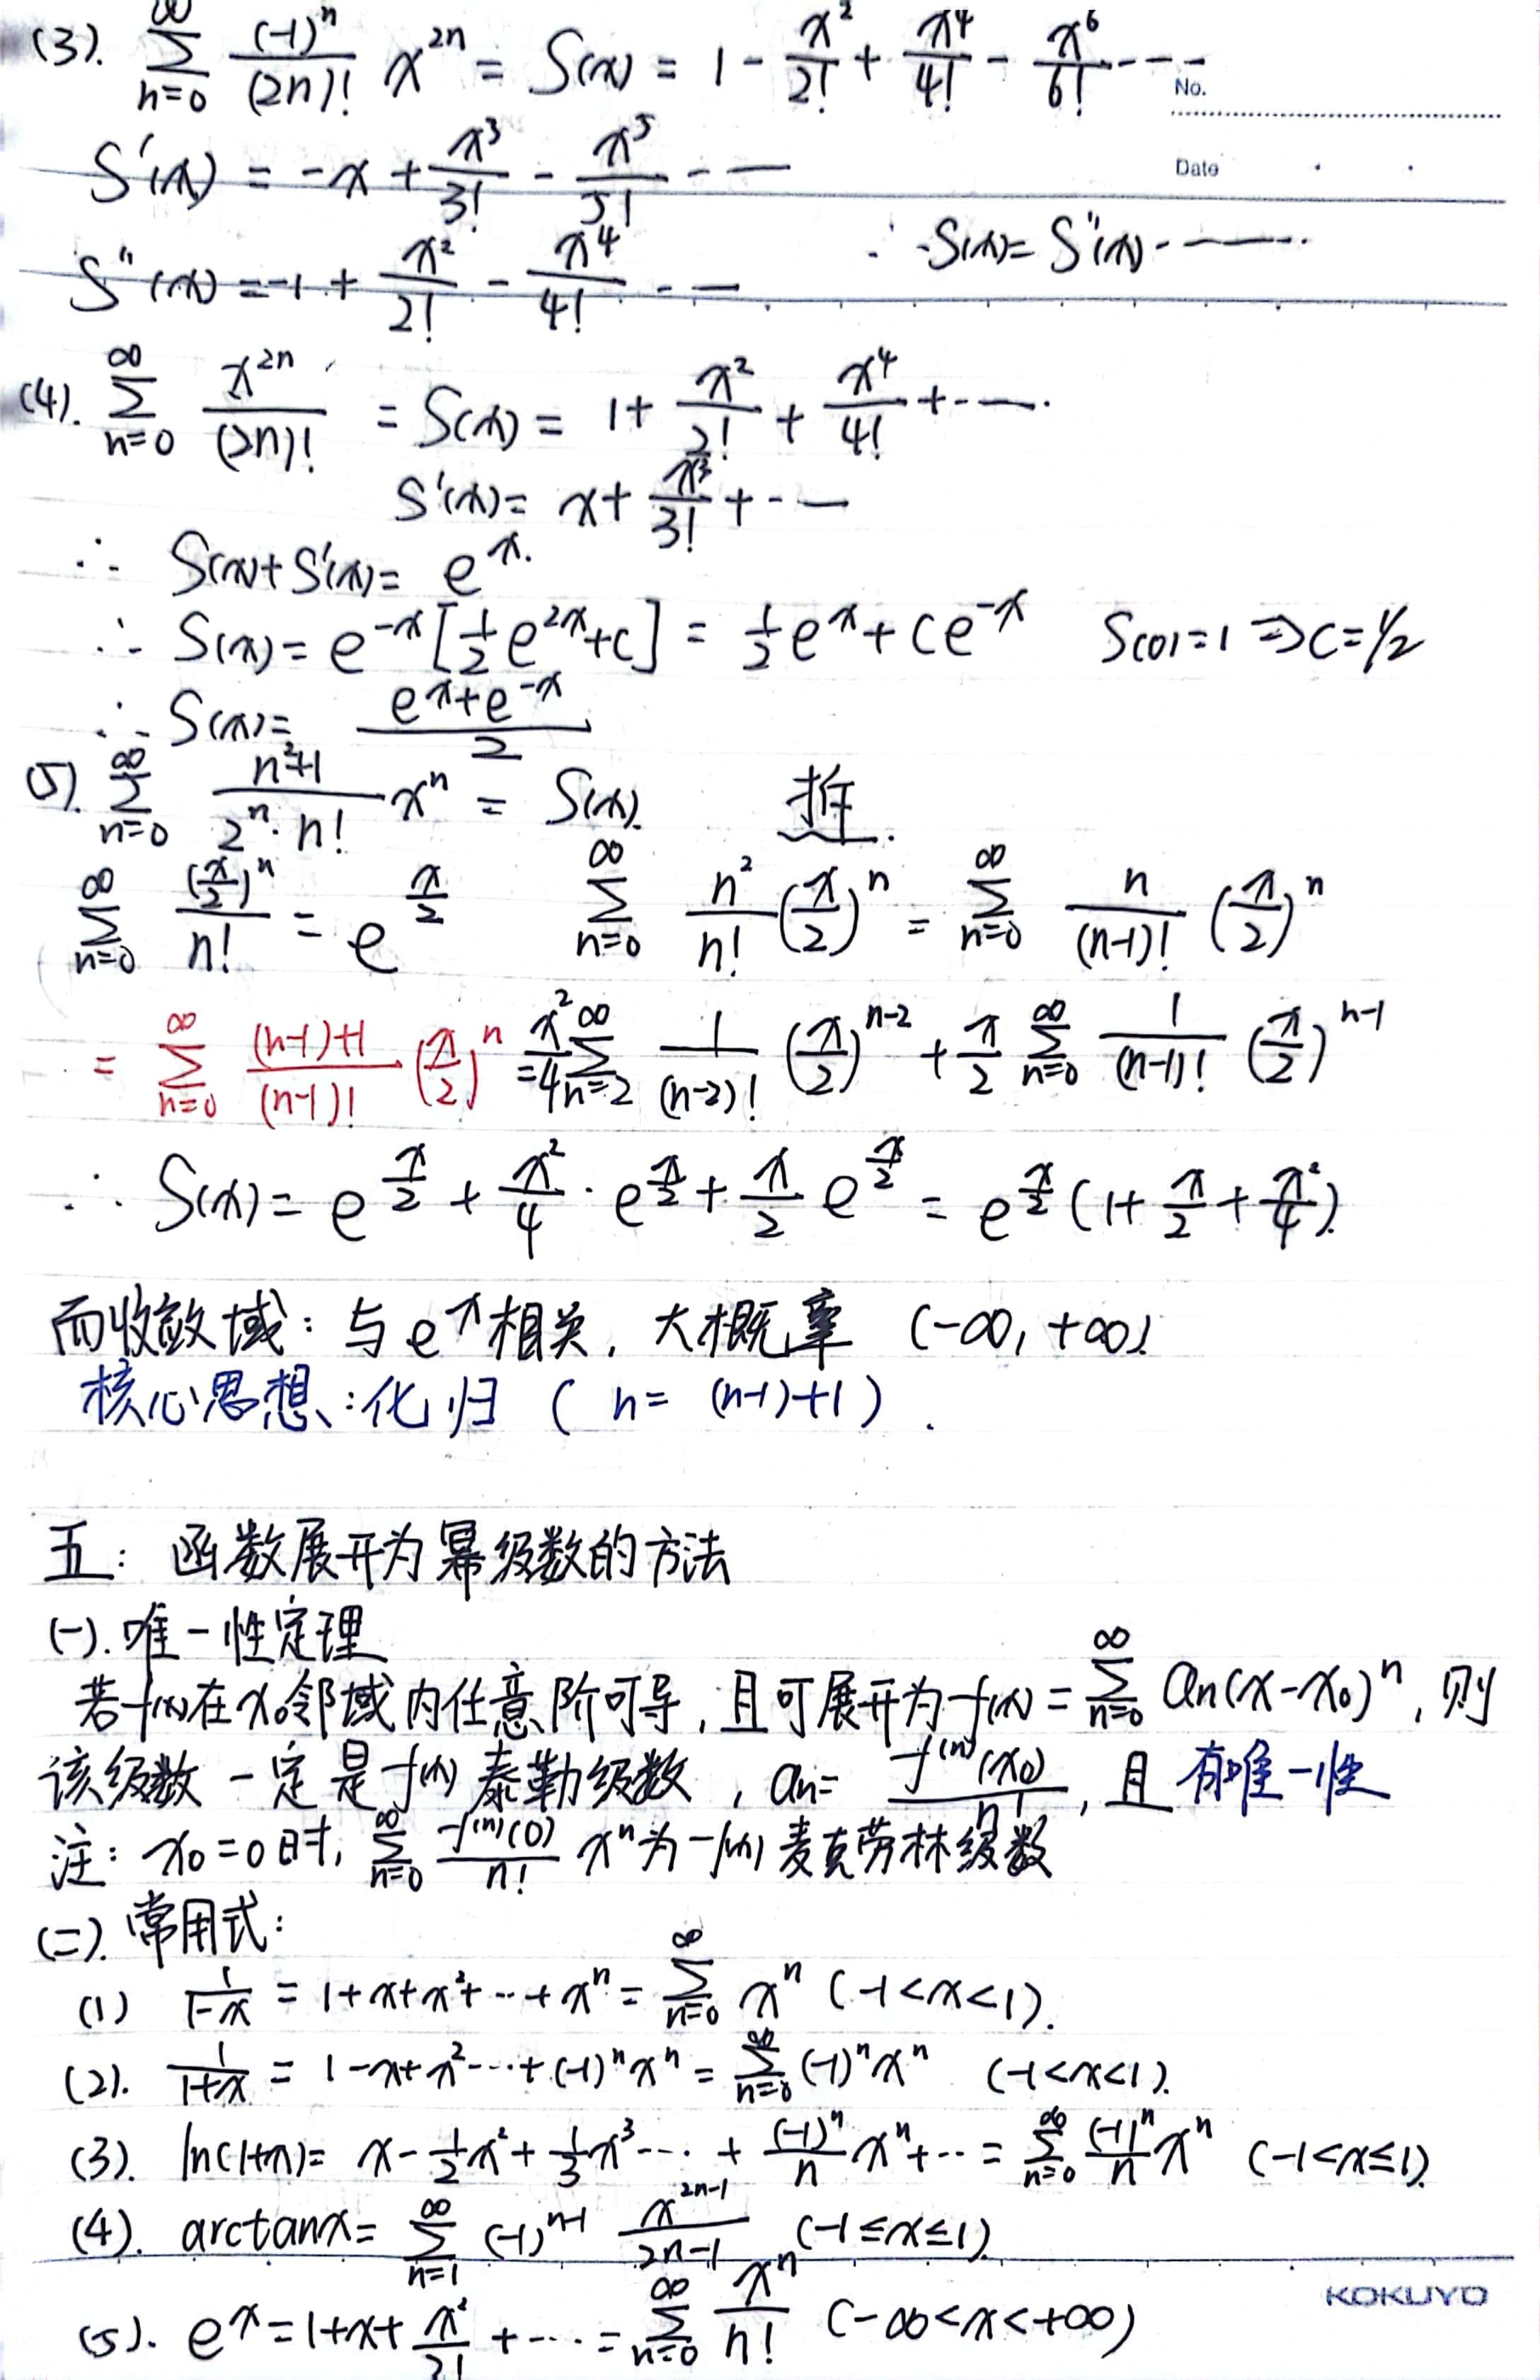 (3). ∑_{n=0}^{∞} \frac{(-1)^n}{(2n)!} x^{2n} = S(x) = 1 - \frac{x^2}{2!} + \frac{x^4}{4!} - \frac{x^6}{6!} ----
No.
S'(x) = -x + \frac{x^3}{3!} - \frac{x^5}{5!} - —
Date
∴ -S(x) = S''(x) ------
S''(x) = -1 + \frac{x^2}{2!} - \frac{x^4}{4!} - —
(4). ∑_{n=0}^{∞} \frac{x^{2n}}{(2n)!} = S(x) = 1 + \frac{x^2}{2!} + \frac{x^4}{4!} + ----
S'(x) = x + \frac{x^3}{3!} + ---
∴ S(x)+S'(x) = e^x.
∴ S(x) = e^{-x}[\frac{1}{2}e^{2x}+C] = \frac{1}{2}e^x + Ce^{-x} S(0)=1 ⇒ C=1/2
∴ S(x) = \frac{e^x+e^{-x}}{2}
(5). ∑_{n=0}^{∞} \frac{n^2+1}{2^n·n!} x^n = S(x).
∑_{n=0}^{∞} \frac{(\frac{x}{2})^n}{n!} = e^{\frac{x}{2}} ∑_{n=0}^{∞} \frac{n^2}{n!}(\frac{x}{2})^n = ∑_{n=0}^{∞} \frac{n}{(n-1)!}(\frac{x}{2})^n
= ∑_{n=0}^{∞} \frac{(n-1)+1}{(n-1)!}(\frac{x}{2})^n = \frac{x^2}{4}∑_{n=2}^{∞} \frac{1}{(n-2)!}(\frac{x}{2})^{n-2} + \frac{x}{2}∑_{n=0}^{∞} \frac{1}{(n-1)!}(\frac{x}{2})^{n-1}
∴ S(x) = e^{\frac{x}{2}} + \frac{x^2}{4}·e^{\frac{x}{2}} + \frac{x}{2}e^{\frac{x}{2}} = e^{\frac{x}{2}}(1+\frac{x}{2}+\frac{x^2}{4}).
而收敛域：与e^x相关，大概率 (-∞, +∞).
核心思想：化归 ( n = (n-1)+1 ) .
五：函数展开为幂级数的方法
(一). 唯一性定理
若f(x)在x₀邻域内任意阶可导，且可展开为f(x) = ∑_{n=0}^{∞} a_n(x-x₀)^n，则
该级数一定是f(x)泰勒级数，a_n = \frac{f^{(n)}(x₀)}{n!}，且有唯一性
注：x₀=0时，∑_{n=0}^{∞} \frac{f^{(n)}(0)}{n!} x^n 为f(x)麦克劳林级数
(二). 常用式：
(1) \frac{1}{1-x} = 1+x+x^2+···+x^n = ∑_{n=0}^{∞} x^n (-1<x<1).
(2). \frac{1}{1+x} = 1-x+x^2-···+(-1)^n x^n = ∑_{n=0}^{∞} (-1)^n x^n (-1<x<1).
(3). ln(1+x) = x-\frac{1}{2}x^2+\frac{1}{3}x^3-···+\frac{(-1)^n}{n}x^n+··· = ∑_{n=0}^{∞} \frac{(-1)^n}{n}x^n (-1<x≤1).
(4). arctanx = ∑_{n=1}^{∞} (-1)^{n-1} \frac{x^{2n-1}}{2n-1} (-1≤x≤1).
KOKUYO
(5). e^x = 1+x+\frac{x^2}{2!}+···· = ∑_{n=0}^{∞} \frac{x^n}{n!} (-∞<x<+∞)